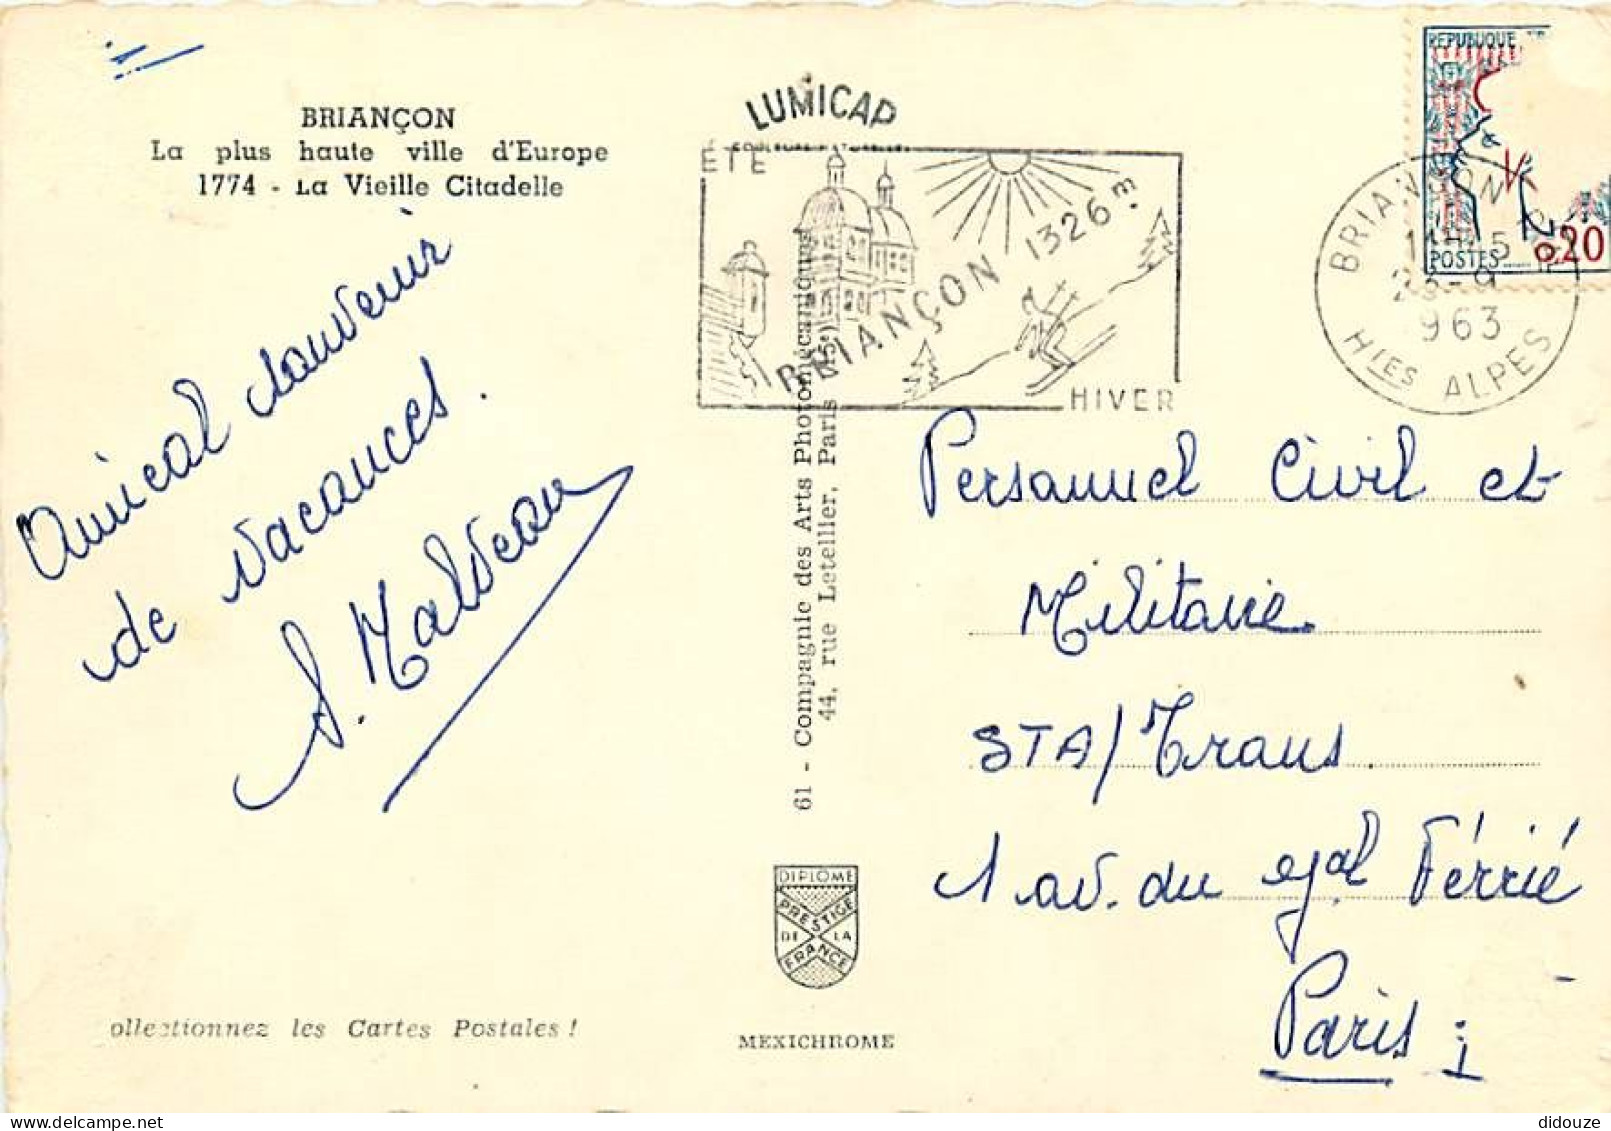 BRIANÇON
La plus haute ville d'Europe
1774 - La Vieille Citadelle
Amical souvenir
de vacances.
S. Malveau
Collectionnez les Cartes Postales !
LUMICAP
COULEURS NATURELLES
ÉTÉ
BRIANÇON 1326 m.
HIVER
61 - Compagnie des Arts Photomécaniques
44, rue Letellier, Paris (15e)
DIPLOME
PRESTIGE
DE LA
FRANCE
MEXICHROME
REPUBLIQUE
POSTES
0,20
BRIANÇON
23-9
1963
HTES ALPES
Personnel Civil et
Militaire.
STA/Trans.
1 av. du Gal Férrié
Paris
didouze